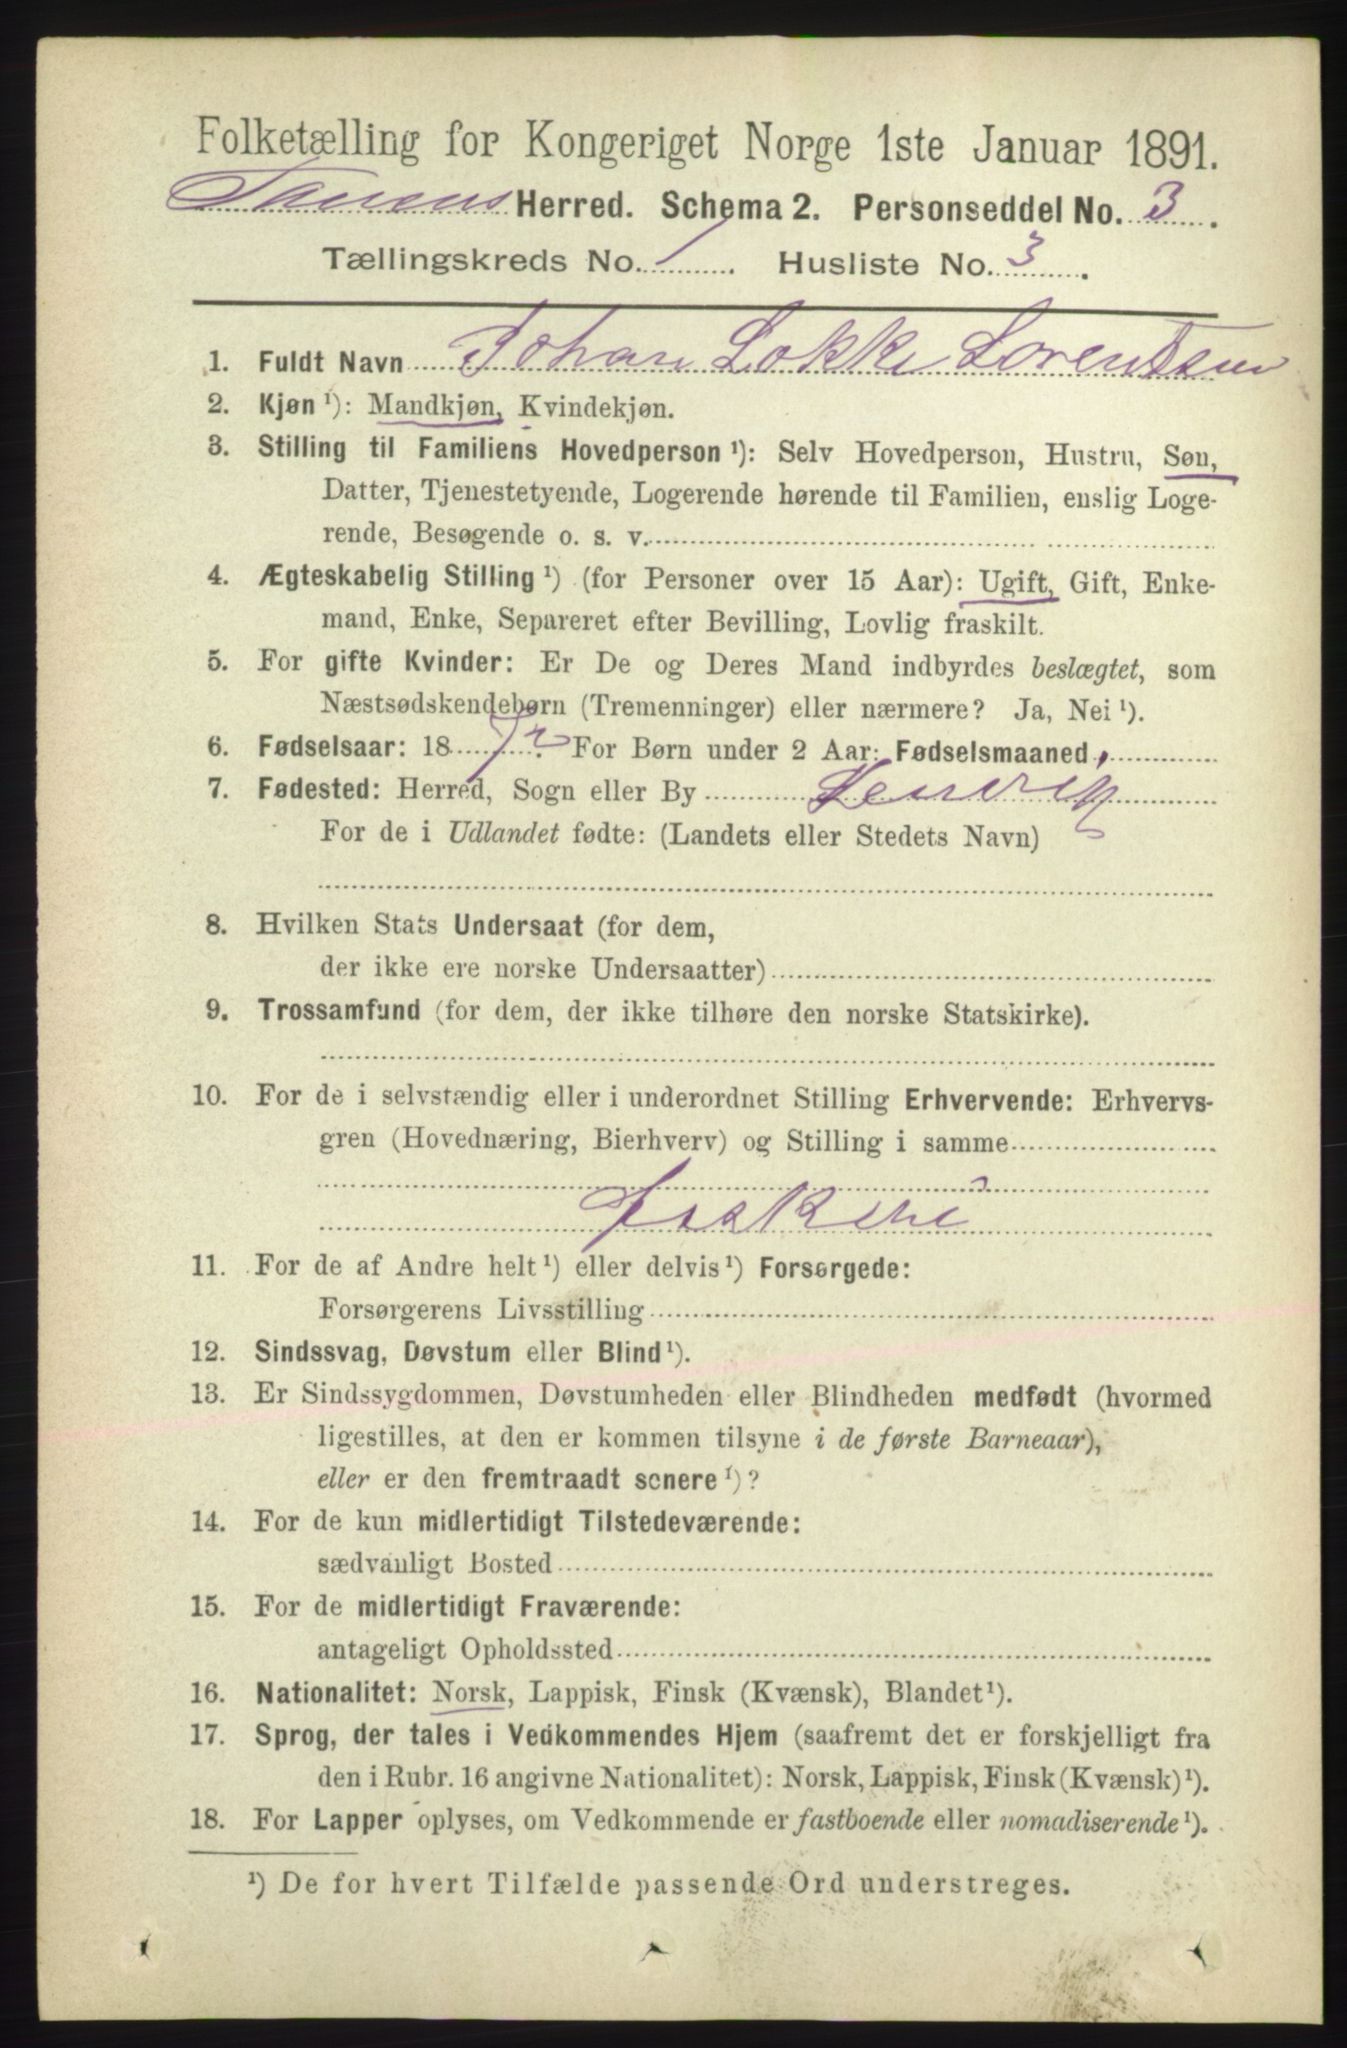 Folketælling for Kongeriget Norge 1ste Januar 1891.
Tanens Herred. Schema 2. Personseddel No. 3.
Tællingskreds No. 1. Husliste No. 3.
1. Fuldt Navn Johan Lokke Lorentsen
2. Kjøn ¹): Mandkjøn, Kvindekjøn.
3. Stilling til Familiens Hovedperson ¹): Selv Hovedperson, Hustru, Søn,
Datter, Tjenestetyende, Logerende hørende til Familien, enslig Loge-
rende, Besøgende o. s. v.
4. Ægteskabelig Stilling ¹) (for Personer over 15 Aar): Ugift, Gift, Enke-
mand, Enke, Separeret efter Bevilling, Lovlig fraskilt.
5. For gifte Kvinder: Er De og Deres Mand indbyrdes beslægtet, som
Næstsødskendebørn (Tremenninger) eller nærmere? Ja, Nei ¹).
6. Fødselsaar: 1872. For Børn under 2 Aar: Fødselsmaaned
7. Fødested: Herred, Sogn eller By
For de i Udlandet fødte: (Landets eller Stedets Navn)
8. Hvilken Stats Undersaat (for dem,
der ikke ere norske Undersaatter)
9. Trossamfund (for dem, der ikke tilhøre den norske Statskirke).
10. For de i selvstændig eller i underordnet Stilling Erhvervende: Erhvervs-
gren (Hovednæring, Bierhverv) og Stilling i samme
Fiskeri
11. For de af Andre helt ¹) eller delvis ¹) Forsørgede:
Forsørgerens Livsstilling
12. Sindssvag, Døvstum eller Blind ¹).
13. Er Sindssygdommen, Døvstumheden eller Blindheden medfødt (hvormed
ligestilles, at den er kommen tilsyne i de første Barneaar),
eller er den fremtraadt senere ¹)?
14. For de kun midlertidigt Tilstedeværende:
sædvanligt Bosted
15. For de midlertidigt Fraværende:
antageligt Opholdssted
16. Nationalitet: Norsk, Lappisk, Finsk (Kvænsk), Blandet ¹).
17. Sprog, der tales i Vedkommendes Hjem (saafremt det er forskjelligt fra
den i Rubr. 16 angivne Nationalitet): Norsk, Lappisk, Finsk (Kvænsk) ¹).
18. For Lapper oplyses, om Vedkommende er fastboende eller nomadiserende ¹).
¹) De for hvert Tilfælde passende Ord understreges.